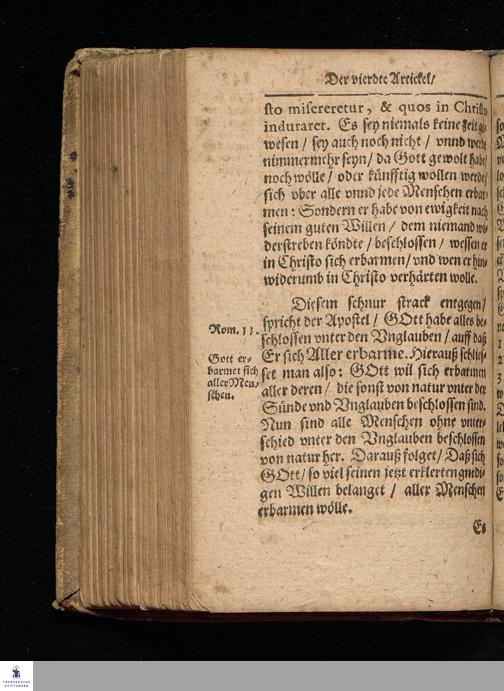 Der vierdte Artickel/
sto misereretur, & quos in Christo
induraret. Es sey niemals keine zeit ge-
wesen / sey auch noch nicht / vnnd werde
nimmermehr seyn / da Gott gewolt habe/
noch wölle / oder künfftig wollen werde/
sich vber alle vnnd jede Menschen erbar-
men: Sondern er habe von ewigkeit nach
seinem guten Willen / dem niemand wi-
derstreben köndte / beschlossen / wessen er
in Christo sich erbarmen / vnd wen er hin-
widerumb in Christo verhärten wolle.
Diesem schnur strack entgegen/
spricht der Apostel / GOtt habe alles be-
schlossen vnter den Vnglauben / auff daß
Er sich Aller erbarme. Hierauß schlies-
set man also: GOtt wil sich erbarmen
aller deren / die sonst von natur vnter der
Sünde vnd Vnglauben beschlossen sind.
Nun sind alle Menschen ohne vnter-
schied vnter den Vnglauben beschlossen
von natur her. Darauß folget / Daß sich
GOtt / so viel seinen jetzt erklerten gnedi-
gen Willen belanget / aller Menschen
erbarmen wölle.
Rom. 11.
Gott er-
barmet sich
aller Men-
schen.
Es
FRANCKESCHE
STIFTUNGEN